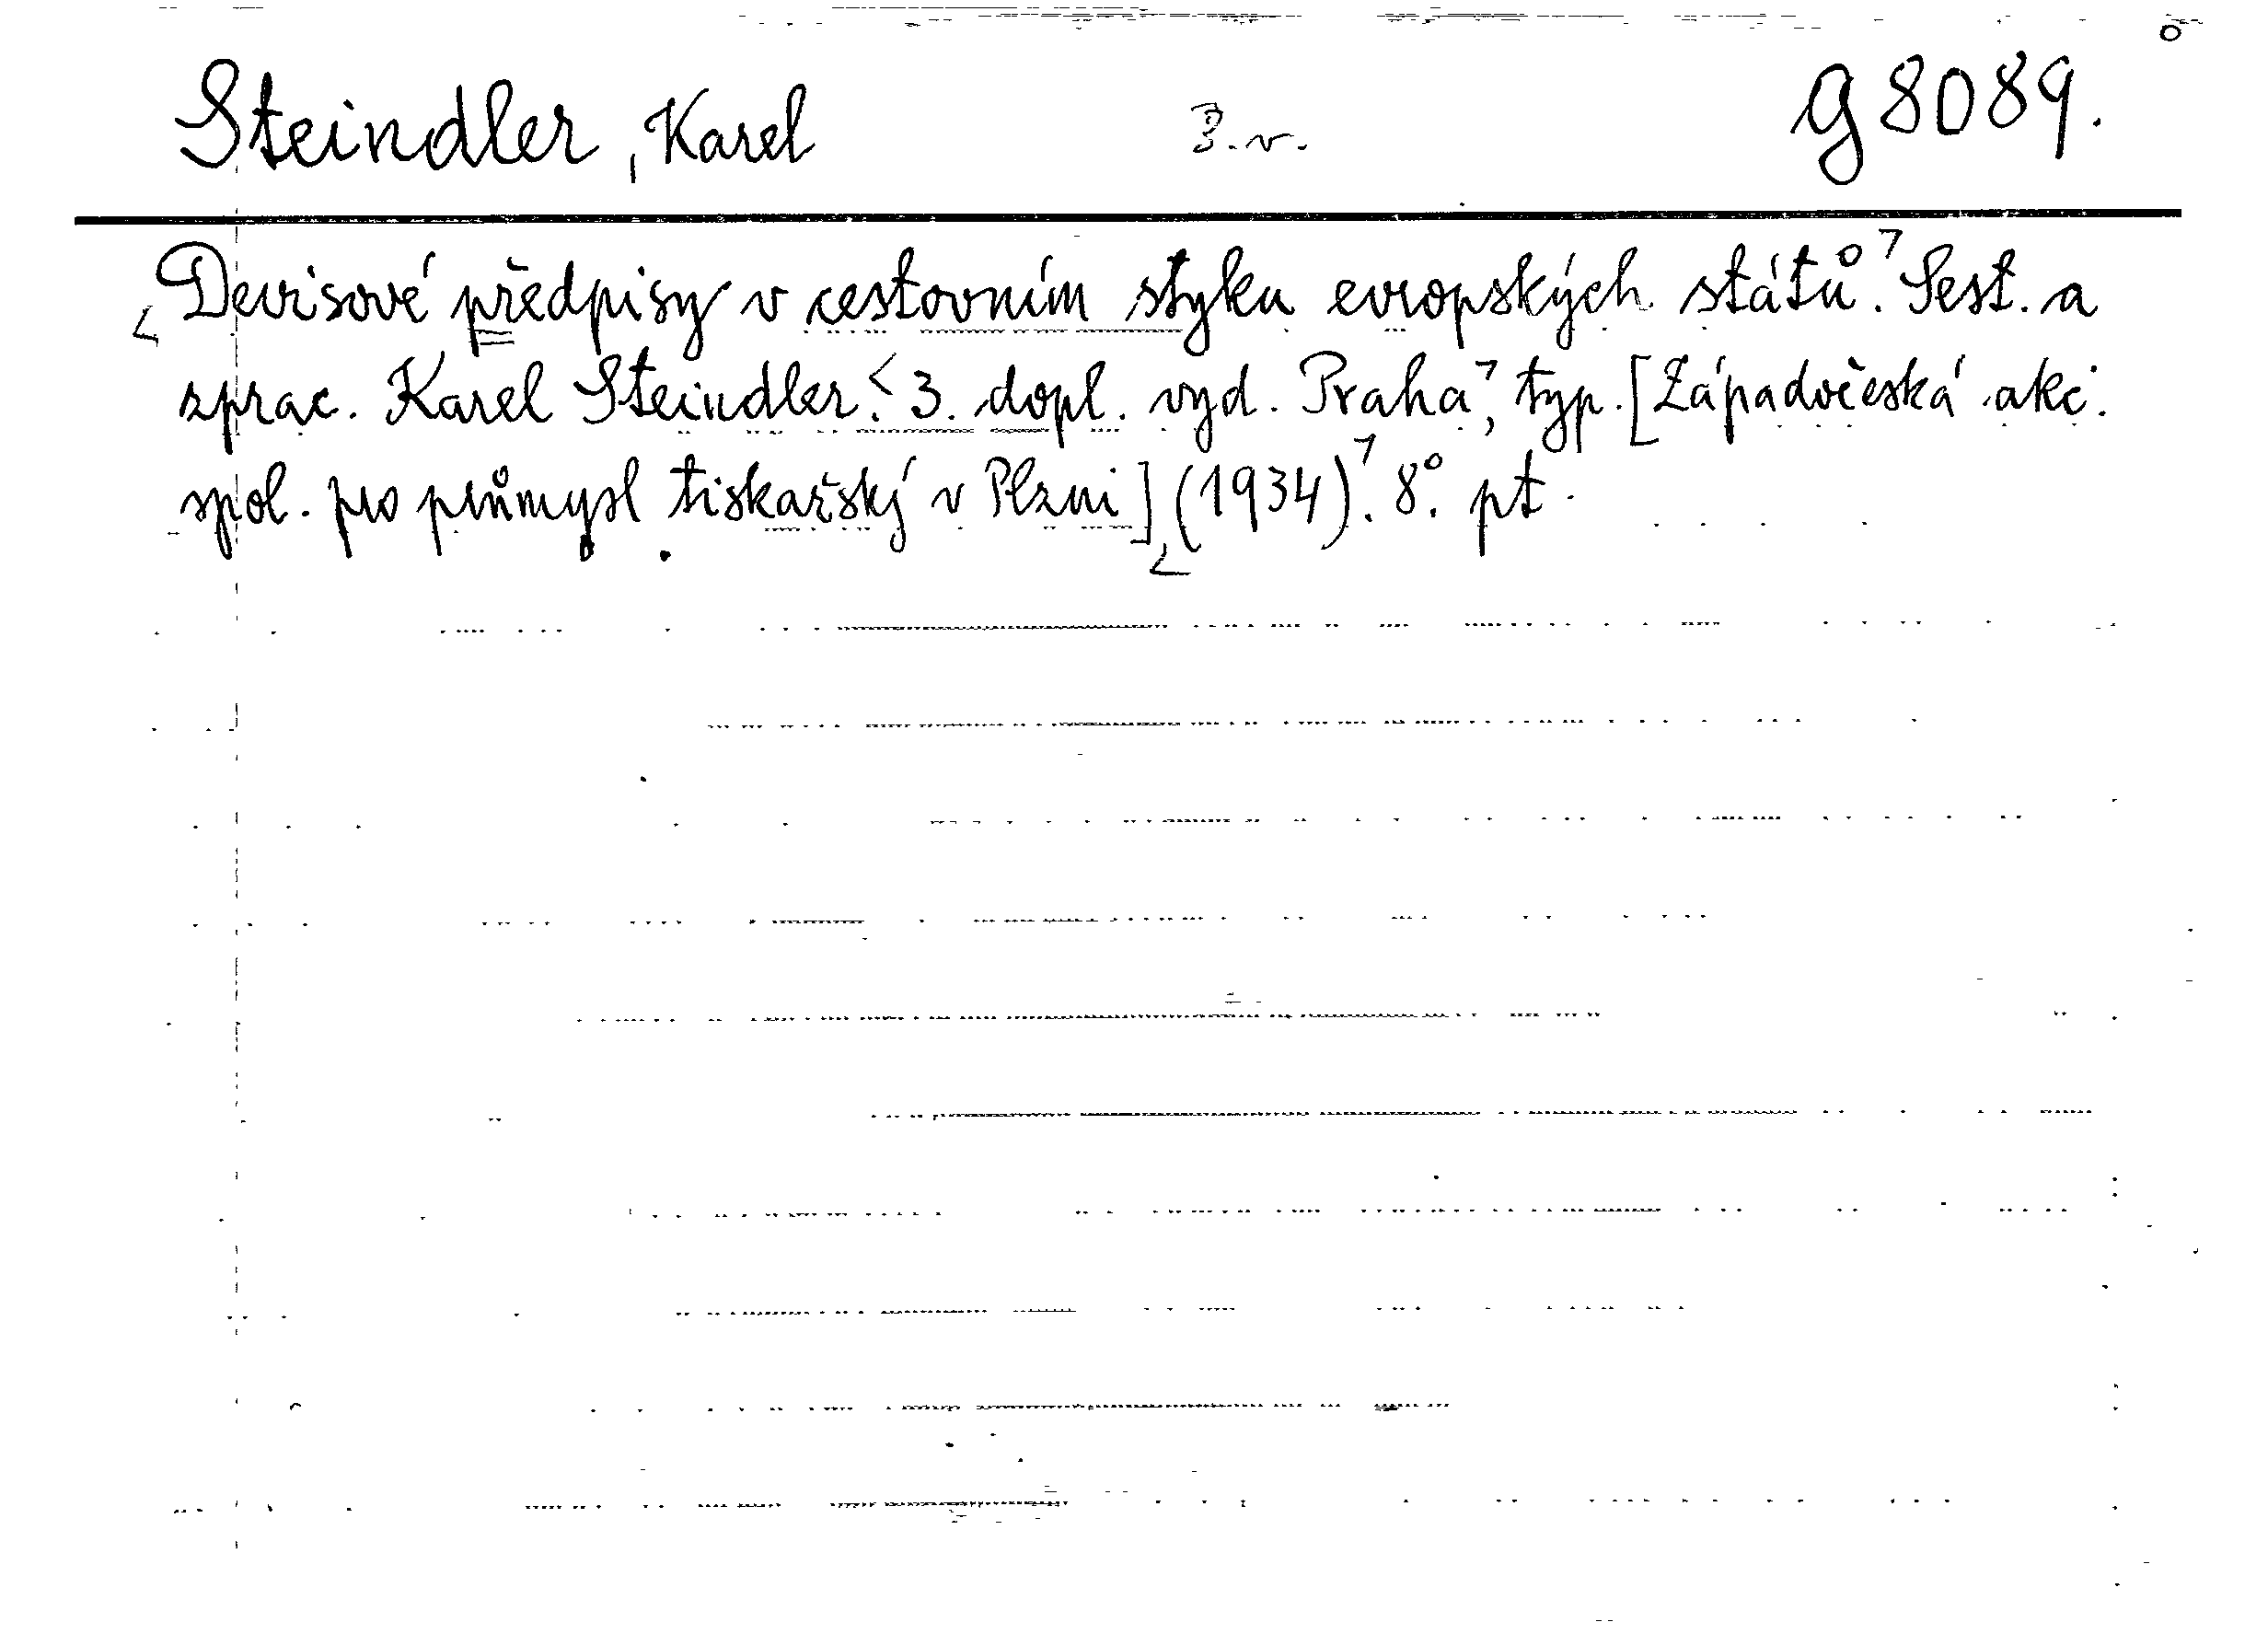 Steindler, Karel 3. v. g 8089.
Devisové předpisy v cestovním styku evropských států. Sest. a
zprac. Karel Steindler. 3. dopl. vyd. Praha, typ. [Západočeská akc.
spol. pro průmysl tiskařský v Plzni] (1934). 8°. pt.